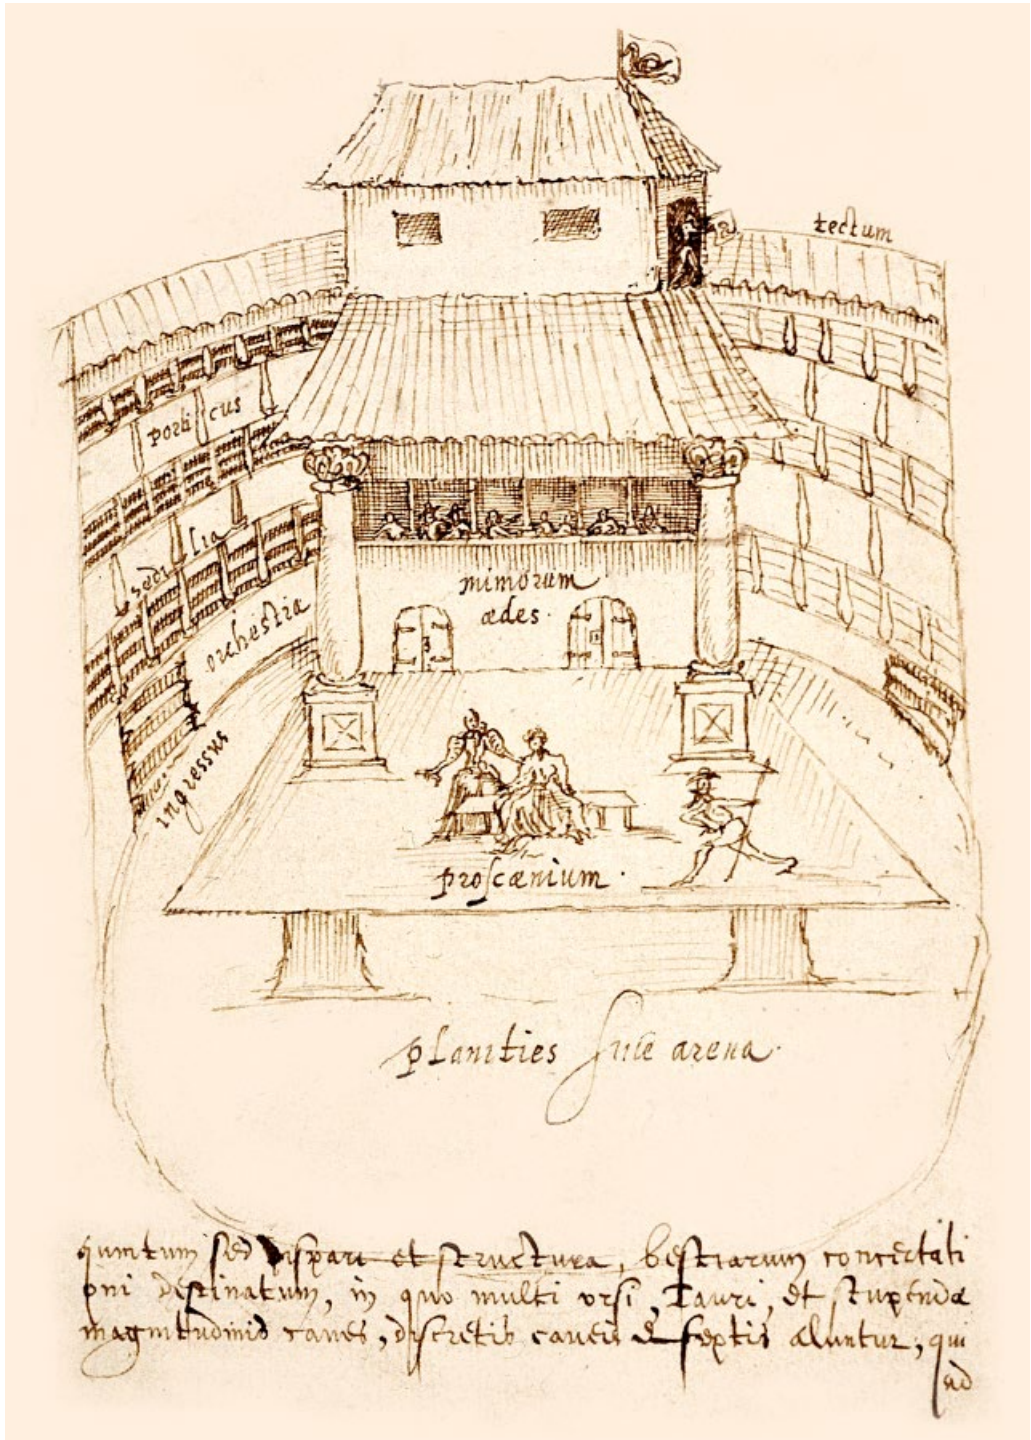 tectum
porticus
sedilia
orchestra
mimorum
ædes.
ingressus
proscænium.
planities sive arena.
quintum sed dispari et structura, bestiarum concertati
oni destinatum, in quo multi ursi, Tauri, et stupendæ
magnitudinis canes, discretis caveis & septis aluntur, qui
ad